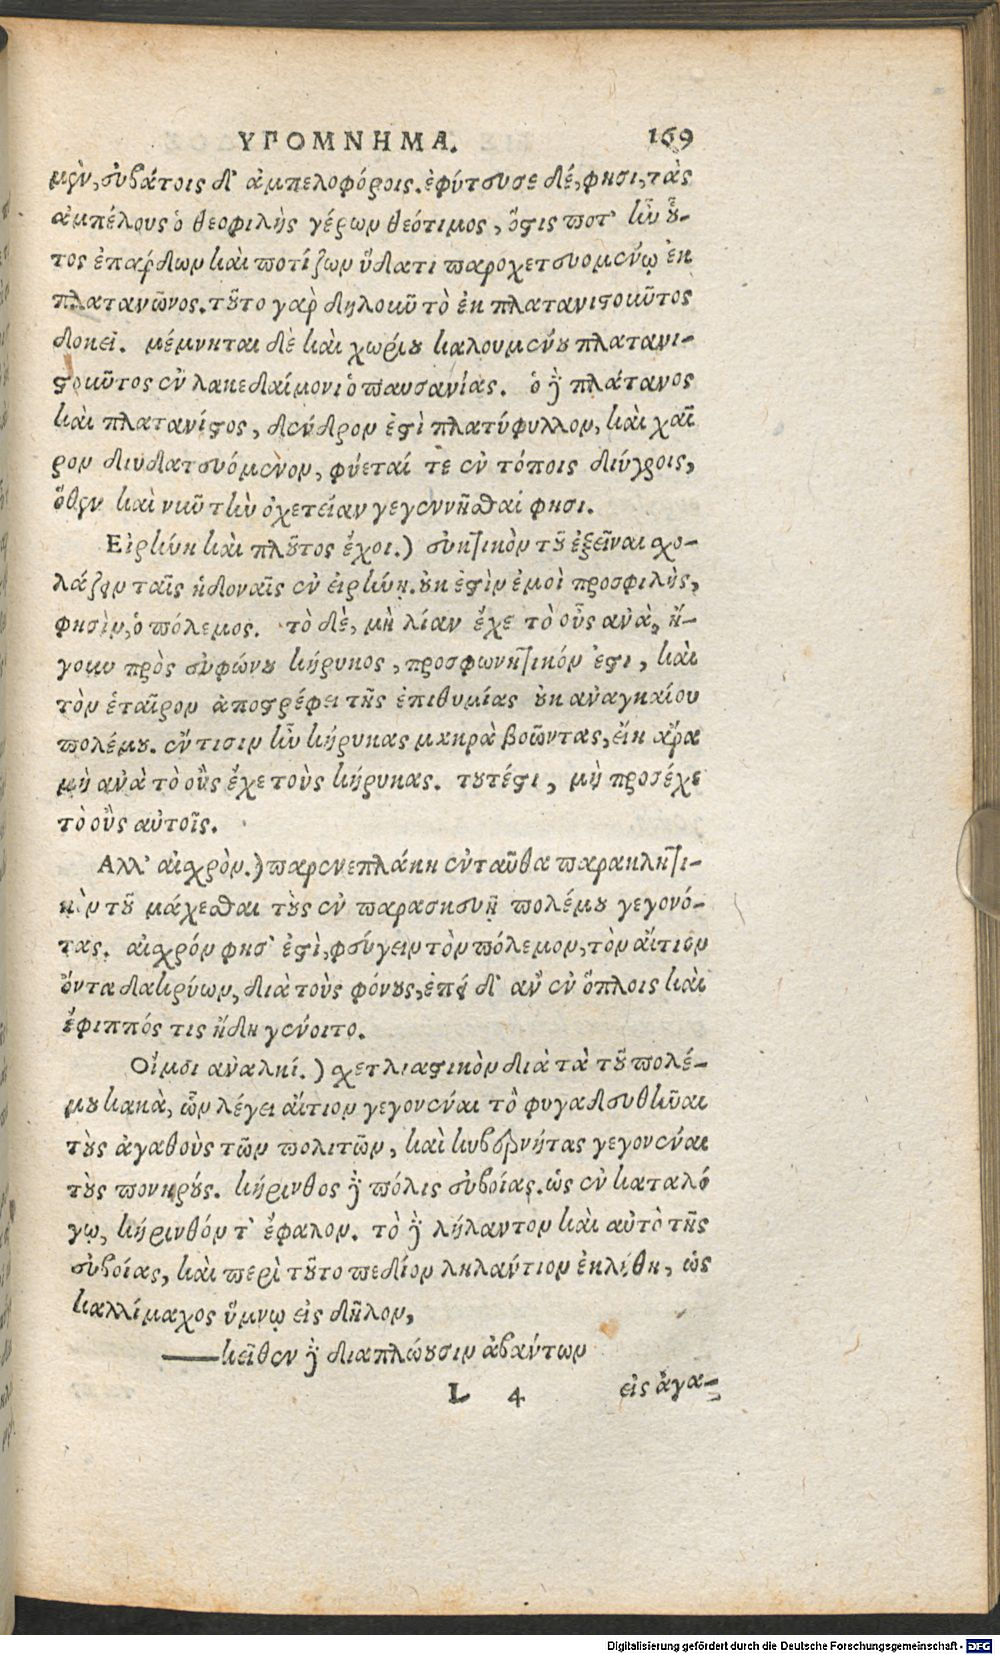 ΥΠΟΜΝΗΜΑ. 169
μὲν, εὐβάτοις δ' ἀμπελοφόροις. ἐφύτευσε δέ, φησι, τὰς
ἀμπέλους ὁ θεοφιλὴς γέρων θεότιμος, ὅστις ποτ' ἦν οὗ-
τος ἐπάρδων καὶ ποτίζων ὕδατι παροχετευομένῳ ἐκ
πλατανῶνος. τοῦτο γὰρ δηλοῦν τὸ ἐκ πλατανιστοῦντος
δοκεῖ. μέμνηται δὲ καὶ χωρίου καλουμένου πλατανι-
στοῦντος ἐν λακεδαίμονι ὁ παυσανίας. ὁ δὲ πλάτανος
καὶ πλατανίστος, δένδρον ἐστὶ πλατύφυλλον, καὶ χαῖ
ρον διυδατευόμενον, φύεταί τε ἐν τόποις διύγροις,
ὅθεν καὶ νῦν τὴν ὀχετείαν γεγεννῆσθαί φησι.
Εἰρήνη καὶ πλοῦτος ἔχοι.) εὐκτικὸν τοῦ ἐξεῖναι σχο-
λάζειν ταῖς ἡδοναῖς ἐν εἰρήνῃ. οὐκ ἐστὶν ἐμοὶ προσφιλὴς,
φησὶν, ὁ πόλεμος. τὸ δὲ, μὴ λίαν ἔχε τὸ οὖς ἀνὰ, ἤ-
γουν πρὸς εὐφώνου κήρυκος, προσφωνητικόν ἐστι, καὶ
τὸν ἑταῖρον ἀποστρέφει τῆς ἐπιθυμίας οὐκ ἀναγκαίου
πολέμου. ἔν τισιν ἦν κήρυκας μακρὰ βοῶντας, εἴη ἄρα
μὴ ἀνὰ τὸ οὖς ἔχε τοὺς κήρυκας. τουτέστι, μὴ προσέχε
τὸ οὖς αὐτοῖς.
Αλλ' αἰσχρὸν.) παρενεπλάκη ἐνταῦθα παρακλητι-
κὸν τοῦ μάχεσθαι τοὺς ἐν παρασκευῇ πολέμου γεγονό-
τας. αἰσχρόν φησ' ἐστὶ, φεύγειν τὸν πόλεμον, τὸν αἴτιον
ὄντα δακρύων, διὰ τοὺς φόνους, ἐπεὶ δ' ἂν ἐν ὅπλοις καὶ
ἔφιππός τις ἤδη γένοιτο.
Οἴμοι ἀναλκί.) σχετλιαστικὸν διὰ τὰ τοῦ πολέ-
μου κακὰ, ὧν λέγει αἴτιον γεγονέναι τὸ φυγαδευθῆναι
τοὺς ἀγαθοὺς τῶν πολιτῶν, καὶ κυβερνήτας γεγονέναι
τοὺς πονηρούς. κήρινθος δὲ πόλις εὐβοίας. ὡς ἐν καταλό
γῳ, κήρινθόν τ' ἔφαλον. τὸ δὲ λήλαντον καὶ αὐτὸ τῆς
εὐβοίας, καὶ περὶ τοῦτο πεδίον ληλάντιον ἐκλήθη, ὡς
καλλίμαχος ὕμνῳ εἰς δῆλον,
——κεῖθεν δὲ διαπλώουσιν ἀβάντων
L 4 εἰς ἄγα-
Digitalisierung gefördert durch die Deutsche Forschungsgemeinschaft - DFG